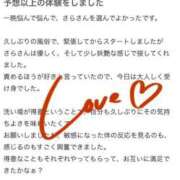 予想以上の体験をしました
一晩悩んで悩んで、さらさんを選んでよかったです。
久しぶりの風俗で、緊張してからスタートしましたが
さらさんは優しく、そして少し妖艶な感じで接してくれま
した。
責めるほう好き と言っていたので、今日は大人しく受
け身でした。
洗い場が得意ということで、自分も久しぶりにその気持
ちよさを味わいたくて
お願いしました。敏感になった体の反応を見るのも、
感じるのもすごく興奮できました。
得意なこともそれぞれやってもらって、お互いに満足で
きたかなぁ?
Love